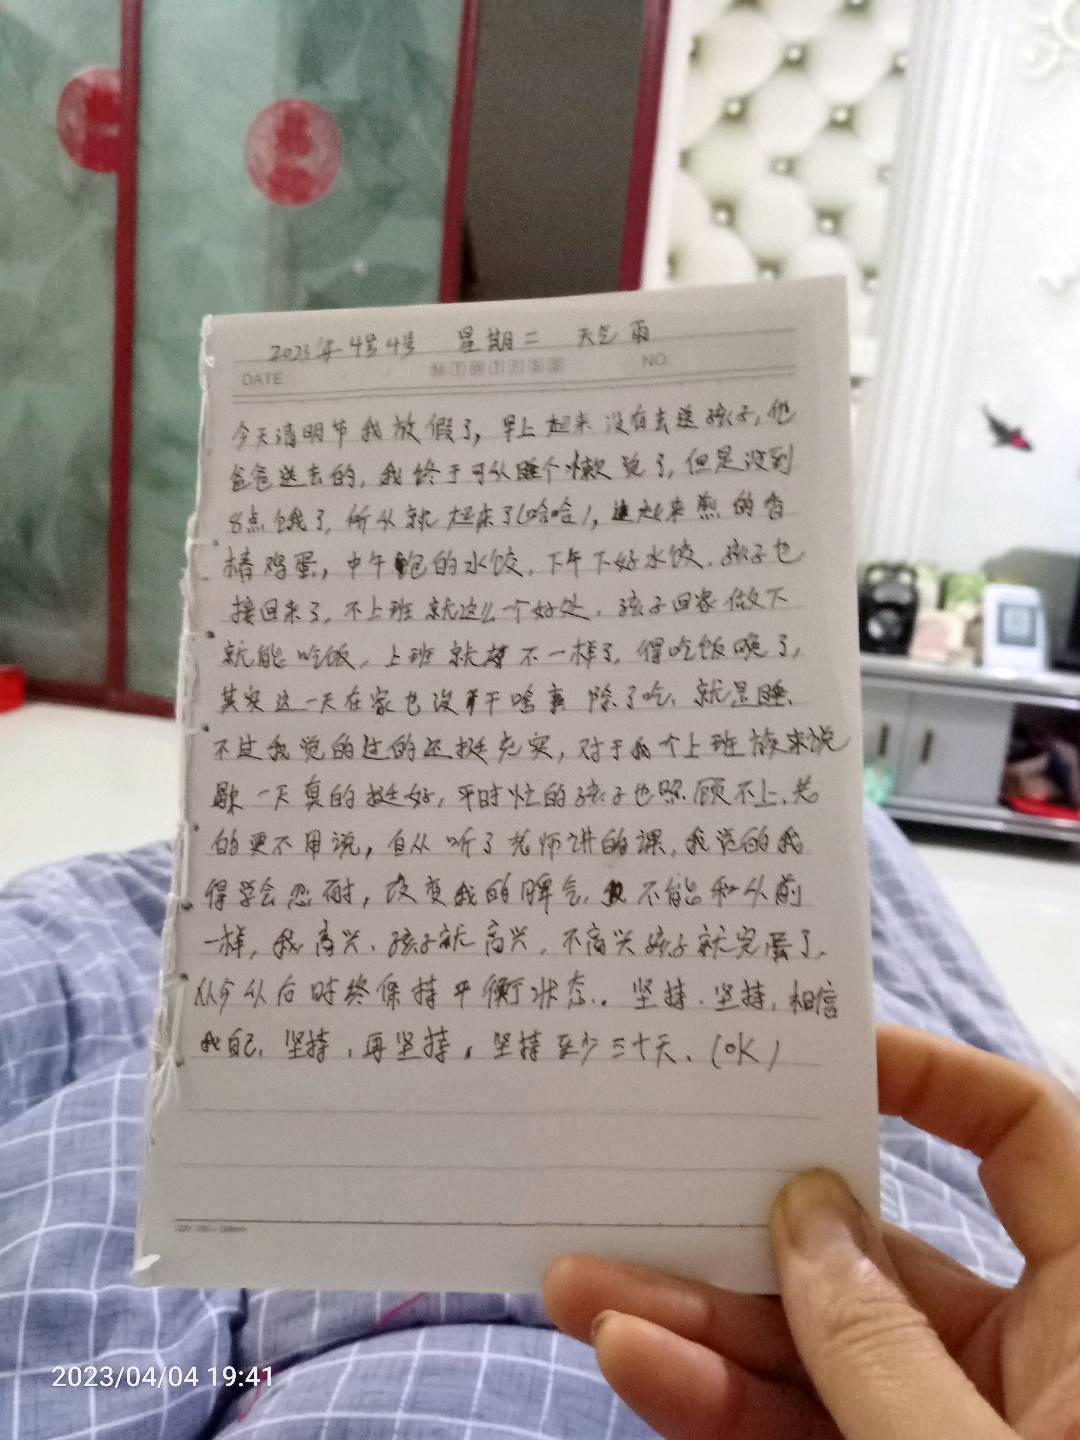 2023年4号4号 星期二 天气 雨
DATE: M T W T F S S NO.
今天清明节我放假了，早上起来没有去送孩子，他
爸爸送去的，我终于可以睡个懒觉了，但是没到
8点饿了，所以就起来了(哈哈)，起来煎的香
椿鸡蛋，中午包的水饺，下午下好水饺，孩子也
接回来了，不上班就这么一个好处，孩子回家做下
就能吃饭，上班就不一样了，得吃饭晚了，
其实这一天在家也没干啥事 除了吃，就是睡、
不过我觉的过的还挺充实，对于我个上班族来说
歇一天真的挺好，平时忙的孩子也照顾不上、老
的更不用说，自从听了老师讲的课，我觉的我
得学会忍耐，改变我的脾气，不能和从前
一样，我高兴、孩子就高兴，不高兴孩子就完蛋了，
从今以后时终保持平衡状态.。坚持、坚持，相信
我自己，坚持，再坚持，坚持至少三十天、(OK)
2023/04/04 19:41